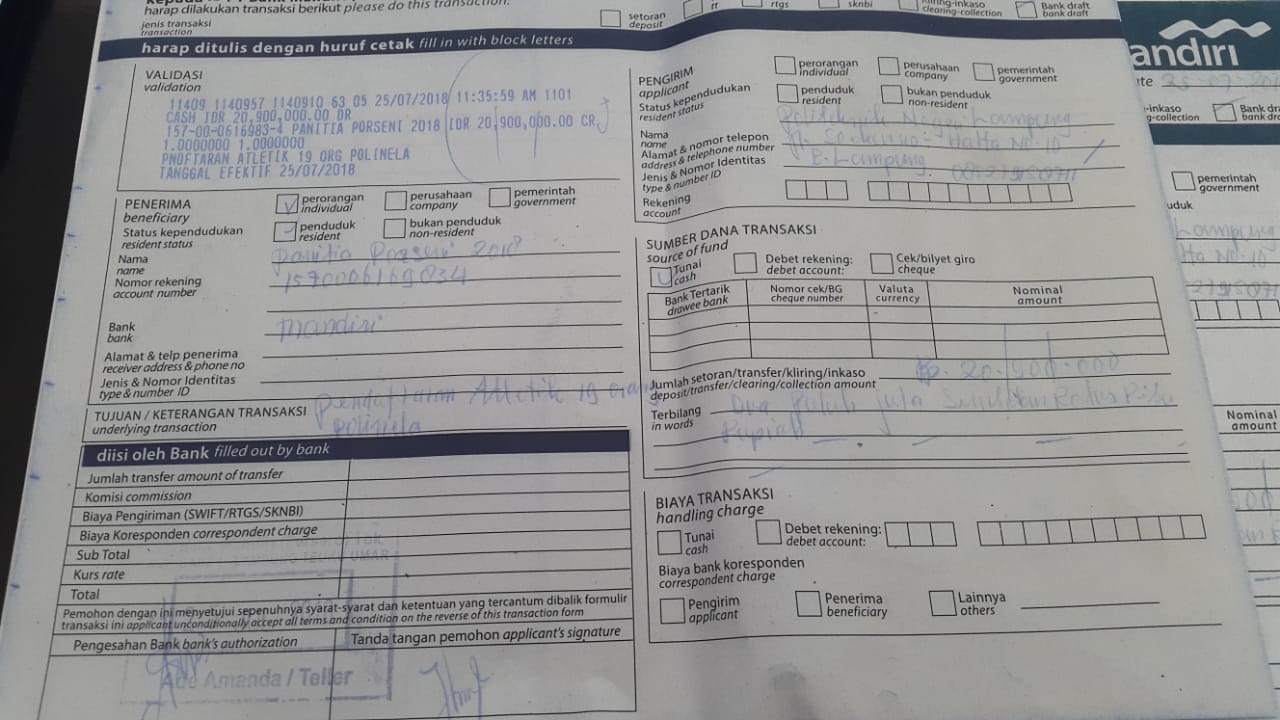 harap dilakukan transaksi berikut please do this transaction:
jenis transaksi
transaction
setoran
deposit
tt
rtgs
sknbi
kliring-inkaso
clearing-collection
Bank draft
bank draft
harap ditulis dengan huruf cetak fill in with block letters
VALIDASI
validation
11409 1140957 1140910 63 05 25/07/2018 11:35:59 AM 1101
CASH IDR 20,900,000.00 DR
157-00-0616983-4 PANITIA PORSENI 2018 IDR 20,900,000.00 CR
1.0000000 1.0000000
PNDFTARAN ATLETIK 19 ORG POLINELA
TANGGAL EFEKTIF 25/07/2018
PENERIMA
beneficiary
perorangan
individual
perusahaan
company
pemerintah
government
Status kependudukan
resident status
penduduk
resident
bukan penduduk
non-resident
Nama
name
Panitia Porseni 2018
Nomor rekening
account number
1570006169834
Bank
bank
mandiri
Alamat & telp penerima
receiver address & phone no
Jenis & Nomor Identitas
type & number ID
TUJUAN / KETERANGAN TRANSAKSI
underlying transaction
Pendaftaran Atletik 19 orang
Polinela
diisi oleh Bank filled out by bank
Jumlah transfer amount of transfer
Komisi commission
Biaya Pengiriman (SWIFT/RTGS/SKNBI)
Biaya Koresponden correspondent charge
Sub Total
Kurs rate
Total
Pemohon dengan ini menyetujui sepenuhnya syarat-syarat dan ketentuan yang tercantum dibalik formulir
transaksi ini applicant unconditionally accept all terms and condition on the reverse of this transaction form
Pengesahan Bank bank's authorization
Tanda tangan pemohon applicant's signature
Amanda / Teller
PENGIRIM
applicant
perorangan
individual
perusahaan
company
pemerintah
government
Status kependudukan
resident status
penduduk
resident
bukan penduduk
non-resident
Nama
name
Politeknik Negeri Lampung
Alamat & nomor telepon
address & telephone number
Jl. Soekarno - Hatta No. 10
B. Lampung.
Jenis & Nomor Identitas
type & number ID
Rekening
account
SUMBER DANA TRANSAKSI
source of fund
Tunai
cash
Debet rekening:
debet account:
Cek/bilyet giro
cheque
Bank Tertarik
drawee bank
Nomor cek/BG
cheque number
Valuta
currency
Nominal
amount
Jumlah setoran/transfer/kliring/inkaso
deposit/transfer/clearing/collection amount
Rp. 20.900.000
Terbilang
in words
Dua puluh juta Sembilan Ratus Ribu
Rupiah
BIAYA TRANSAKSI
handling charge
Tunai
cash
Debet rekening:
debet account:
Biaya bank koresponden
correspondent charge
Pengirim
applicant
Penerima
beneficiary
Lainnya
others
andiri
25-07-201
-inkaso
g-collection
Bank dr
bank dra
pemerintah
government
uduk
Lampung
Hatta No. 10
Nominal
amount